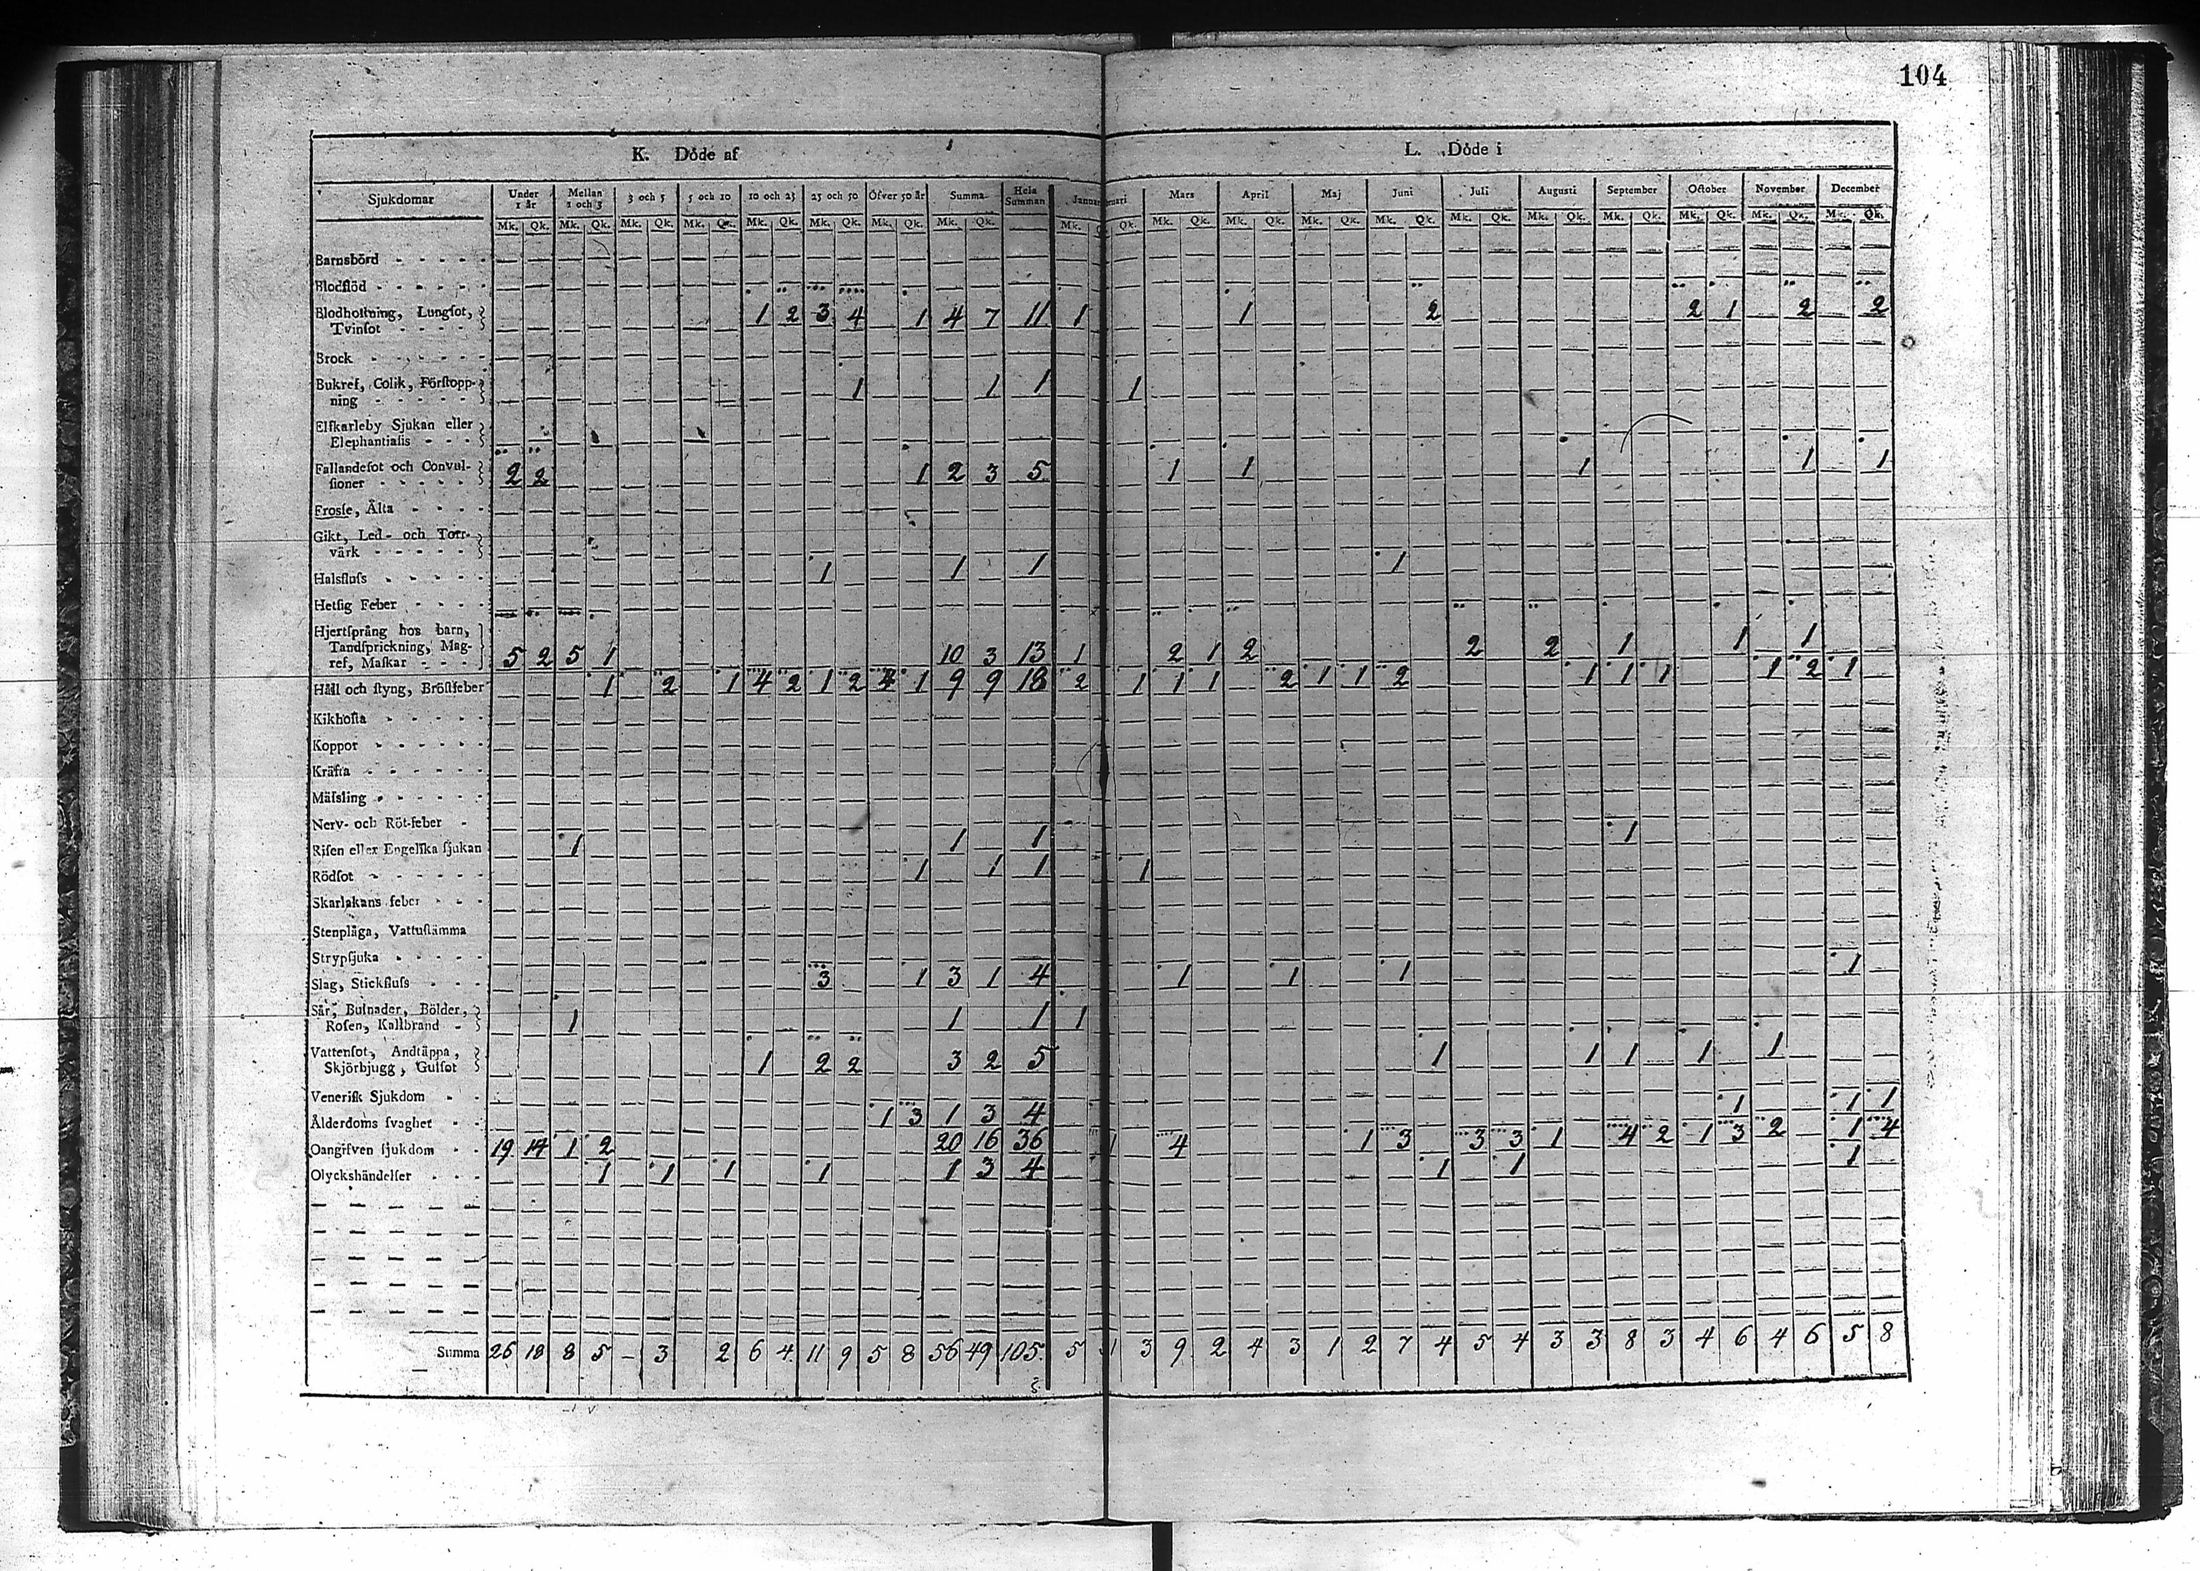 104
K. Döde af
L. Döde i
Sjukdomar Under 1 år Mellan 1 och 3 3 och 5 5 och 10 10 och 25 25 och 50 Öfver 50 år Summa Hela Summan Mars April Maj Juni Juli Augusti September October November December
Mk. Qk. Mk. Qk. Mk. Qk. Mk. Qk. Mk. Qk. Mk. Qk. Mk. Qk. Mk. Qk. Mk. Qk. Mk. Qk. Mk. Qk. Mk. Qk. Mk. Qk. Mk. Qk. Mk. Qk. Mk. Qk. Mk. Qk. Mk. Qk. Mk. Qk.
Barnsbörd
Blodflöd
Blodhoſtning, Lungſot,
Tvinſot 1 2 3 4 1 4 7 11 1 1 2 2 1 2 2
Brock
Bukref, Colik, Förſtopp-
ning 1 1 1 1
Elſkarleby Sjukan eller
Elephantiaſis
Fallandeſot och Convul-
ſioner 2 2 1 2 3 5 1 1 1 1 1
Frosſe, Älta
Gikt, Led- och Torr-
värk
Halsfluſs 1 1 1 1
Hetſig Feber
Hjertſprång hos barn,
Tandſprickning, Mag-
ref, Maſkar 5 2 5 1 10 3 13 1 2 1 2 2 2 1 1 1
Håll och ſtyng, Bröſtfeber 1 2 1 4 2 1 2 1 9 9 18 2 1 1 1 2 1 1 2 1 1 1 1 2 1
Kikhoſta
Koppor
Kräfta
Mäſsling
Nerv- och Röt-feber
Riſen eller Engelſka ſjukan 1 1 1 1
Rödſot 1 1 1 1
Skarlakans feber
Stenplåga, Vattuſtämma
Strypſjuka
Slag, Stickfluſs 3 1 3 1 4 1 1 1 1
Sår, Bulnader, Bölder,
Roſen, Kallbrand 1 1 1 1
Vattenſot, Andtäppa,
Skjörbjugg, Gulſot 1 2 2 3 2 5 1 1 1 1 1
Veneriſk Sjukdom
Ålderdoms ſvaghet 1 3 1 3 4 1 1 1
Oangifven ſjukdom 19 14 1 2 20 16 36 1 4 1 3 3 3 1 4 2 1 3 2 1 4
Olyckshändelſer 1 1 1 1 1 3 4 1 1 1
Summa 26 18 8 5 - 3 2 6 4 11 9 5 8 56 49 105 5 1 3 9 2 4 3 1 2 7 4 5 4 3 3 8 3 4 6 4 6 5 8